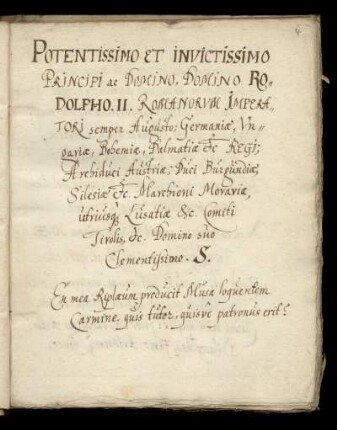 4
POTENTISSIMO ET INVICTISSIMO
PRINCIPI ac DOMINO, DOMINO RO-
DOLPHO. II. ROMANORVM IMPERA-
TORI semper Augusto; Germaniæ, Vn-
gariæ, Bohemiæ, Dalmatiæ &c REGI;
Archiduci Austriæ; Duci Burgundiæ,
Silesiæ &c. Marchioni Moraviæ,
utriusq; Lusatiæ &c. Comiti
Tirolis, &c. Domino suo
Clementissimo. S.
En mea Riplæum producit Musa loquentem
Carmine, quis tutor, quisve patronus erit?